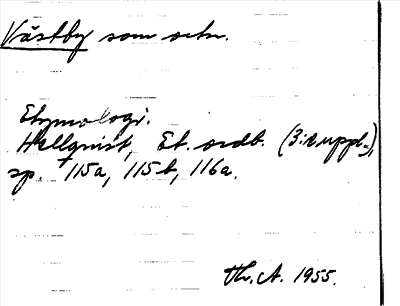 Västby som ortn.
Etymologi.
Hellquist, Et. ordb. (3:e uppl.),
sp. 115a, 115b, 116a.
Th. A. 1955.